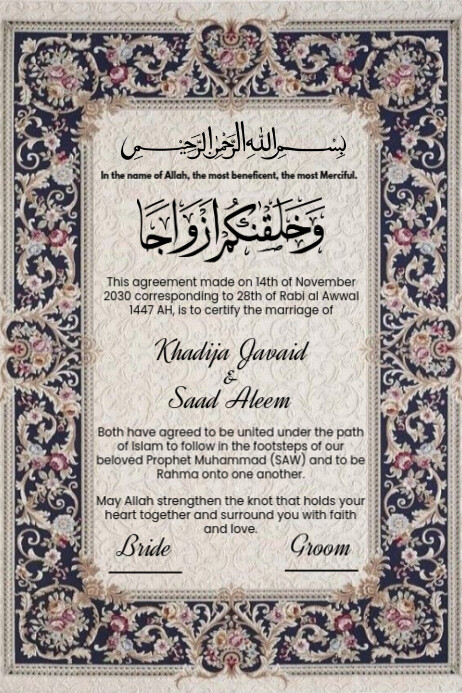 بِسْمِ اللهِ الرَّحْمٰنِ الرَّحِيْمِ
In the name of Allah, the most beneficent, the most Merciful.
وَخَلَقْنٰكُمْ اَزْوَاجًا
This agreement made on 14th of November
2030 corresponding to 28th of Rabi al Awwal
1447 AH, is to certify the marriage of
Khadija Javaid
&
Saad Aleem
Both have agreed to be united under the path
of Islam to follow in the footsteps of our
beloved Prophet Muhammad (SAW) and to be
Rahma onto one another.
May Allah strengthen the knot that holds your
heart together and surround you with faith
and love.
Bride Groom